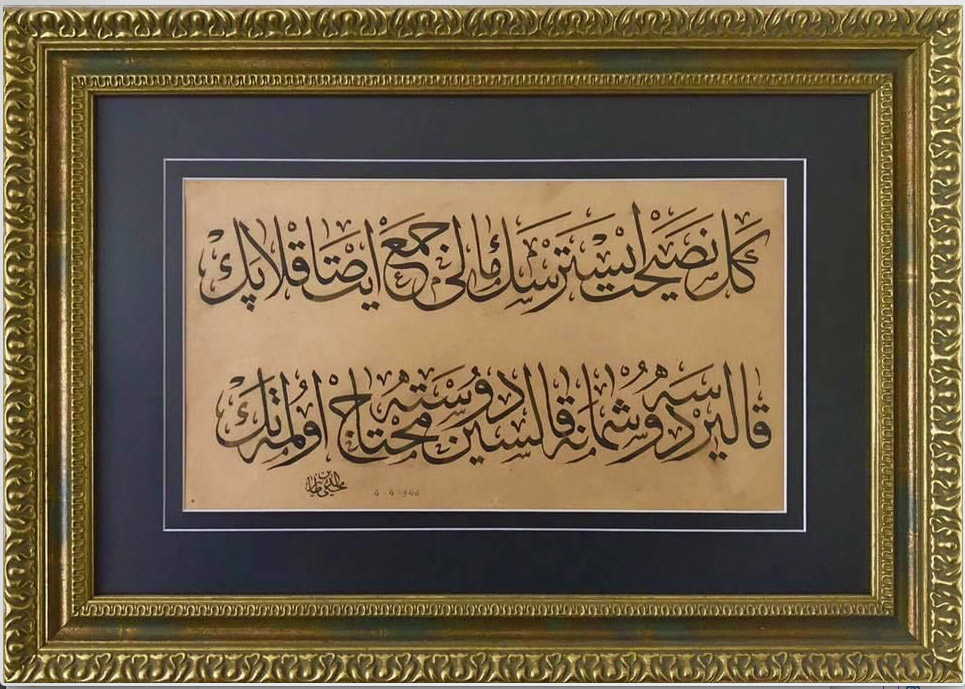 كل نصيحت ايسترسك مالى جمع ايت صاقلا پك
قاليرسه دوشمانه قالسين دوسته محتاج اولمه تك